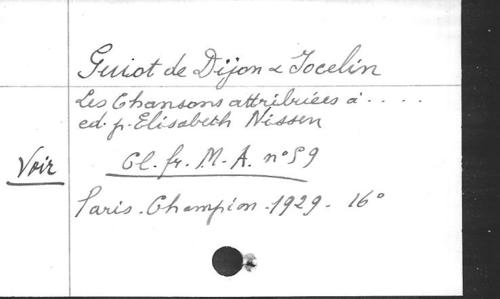 Guiot de Dijon & Jocelin
Les Chansons attribuées à . . . .
ed. p. Elisabeth Nissen
Voir Cl. fr. M. A. n° 59
Paris. Champion. 1929. 16°